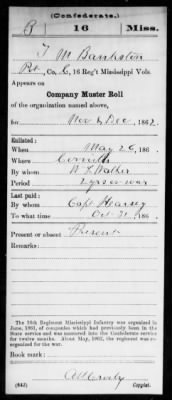 (Confederate.)
B 16 Miss.
T M Bankston
Pvt., Co. C, 16 Reg't Mississippi Vols.
Appears on
Company Muster Roll
of the organization named above,
for Nov & Dec, 1862.
Enlisted:
When May 26, 186 .
Where Corinth
By whom
Period 2 yrs or war
Last paid:
By whom Capt Hearsey
To what time Oct 31, 186 .
Present or absent Present
Remarks:
The 16th Regiment Mississippi Infantry was organized in
June, 1861, of companies which had previously been in the
State service and was mustered into the Confederate service
for twelve months. About May, 1862, the regiment was re-
organized for the war.
Book mark:
(642) Copyist.